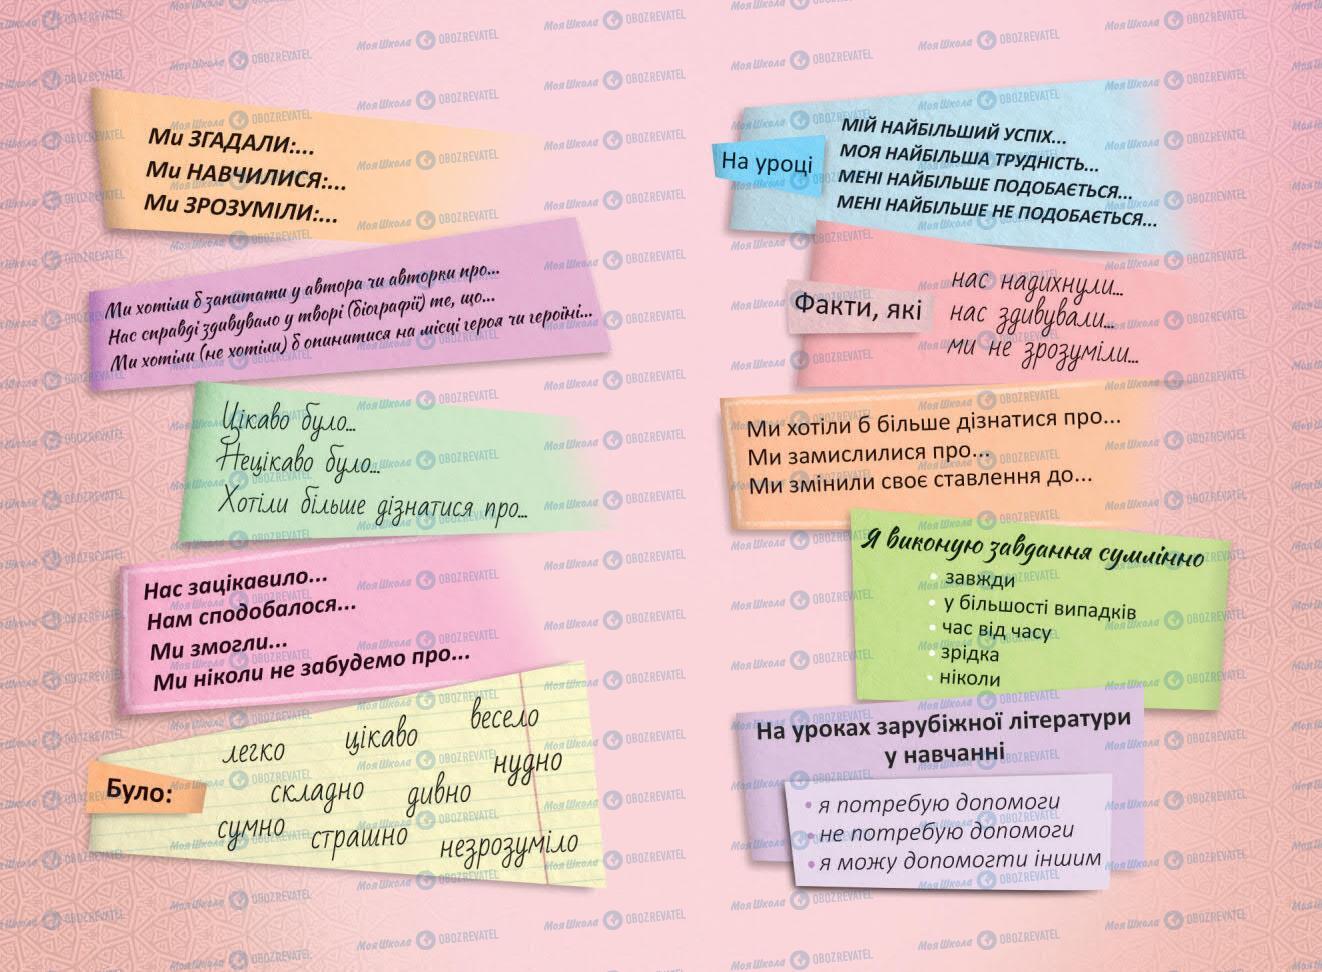 Ми ЗГАДАЛИ:...
Ми НАВЧИЛИСЯ:...
Ми ЗРОЗУМІЛИ:...
Ми хотіли б запитати у автора чи авторки про...
Нас справді здивувало у творі (біографії) те, що...
Ми хотіли (не хотіли) б опинитися на місці героя чи героїні...
Цікаво було...
Нецікаво було...
Хотіли більше дізнатися про...
Нас зацікавило...
Нам сподобалося...
Ми змогли...
Ми ніколи не забудемо про...
Було:
легко цікаво весело
складно дивно нудно
сумно страшно незрозуміло
На уроці
МІЙ НАЙБІЛЬШИЙ УСПІХ...
МОЯ НАЙБІЛЬША ТРУДНІСТЬ...
МЕНІ НАЙБІЛЬШЕ ПОДОБАЄТЬСЯ...
МЕНІ НАЙБІЛЬШЕ НЕ ПОДОБАЄТЬСЯ...
Факти, які
нас надихнули...
нас здивували...
ми не зрозуміли...
Ми хотіли б більше дізнатися про...
Ми замислилися про...
Ми змінили своє ставлення до...
Я виконую завдання сумлінно
• завжди
• у більшості випадків
• час від часу
• зрідка
• ніколи
На уроках зарубіжної літератури
у навчанні
• я потребую допомоги
• не потребую допомоги
• я можу допомогти іншим
Моя Школа OBOZREVATEL